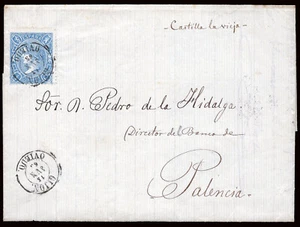 Castilla la vieja
Sor. D. Pedro de la Hidalga.
Director del Banco de
Palencia.
OVIEDO